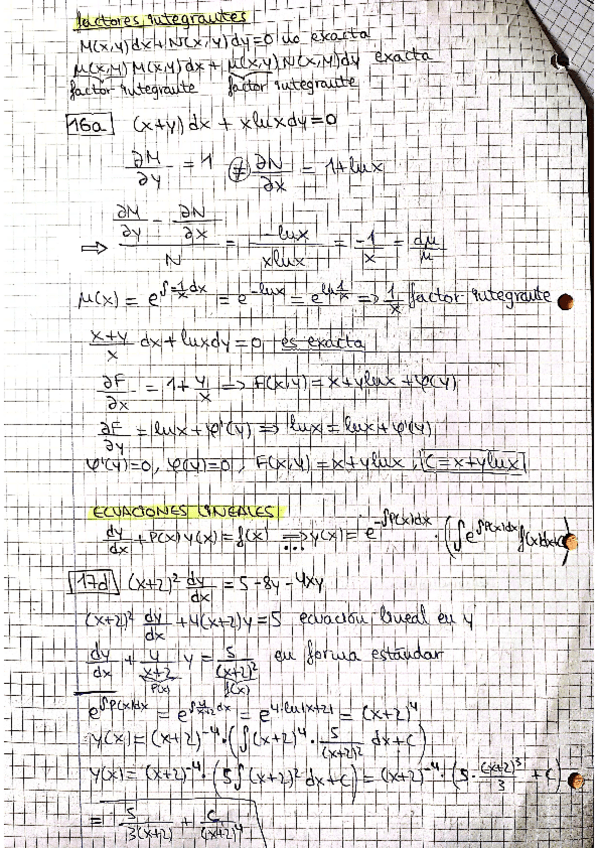 factores integrantes
M(x,y)dx+N(x,y)dy=0 no exacta
μ(x,y)M(x,y)dx+μ(x,y)N(x,y)dy exacta
factor integrante factor integrante
16a (x+y)dx + xlnxdy=0
∂M/∂y = 1 ≠ ∂N/∂x = 1+lnx
⇒ (∂M/∂y - ∂N/∂x)/N = -lnx/xlnx = -1/x = dμ/μ
μ(x) = e^∫-1/x dx = e^-lnx = e^ln 1/x ⇒ 1/x factor integrante
(x+y)/x dx+lnxdy=0 es exacta
∂F/∂x = 1+y/x ⇒ F(x,y)=x+ylnx+φ(y)
∂F/∂y = lnx+φ'(y) ⇒ lnx=lnx+φ'(y)
φ'(y)=0, φ(y)=0, F(x,y)=x+ylnx, C=x+ylnx
ECUACIONES LINEALES
dy/dx+P(x)y(x)=f(x) ⇒ ... y(x)=e^-∫P(x)dx · (∫e^∫P(x)dx f(x)dx+C)
17d (x+2)² dy/dx = 5-8y-4xy
(x+2)² dy/dx +4(x+2)y=5 ecuación lineal en y
dy/dx + 4/(x+2) y = 5/(x+2)² en forma estándar
P(x) f(x)
e^∫P(x)dx = e^∫4/(x+2) dx = e^4·ln|x+2| = (x+2)^4
y(x)=(x+2)^-4·(∫(x+2)^4·5/(x+2)² dx+C)
y(x)=(x+2)^-4·(5∫(x+2)²dx+C)=(x+2)^-4·(5·(x+2)³/3+C)
= 5/3(x+2) + C/(x+2)^4